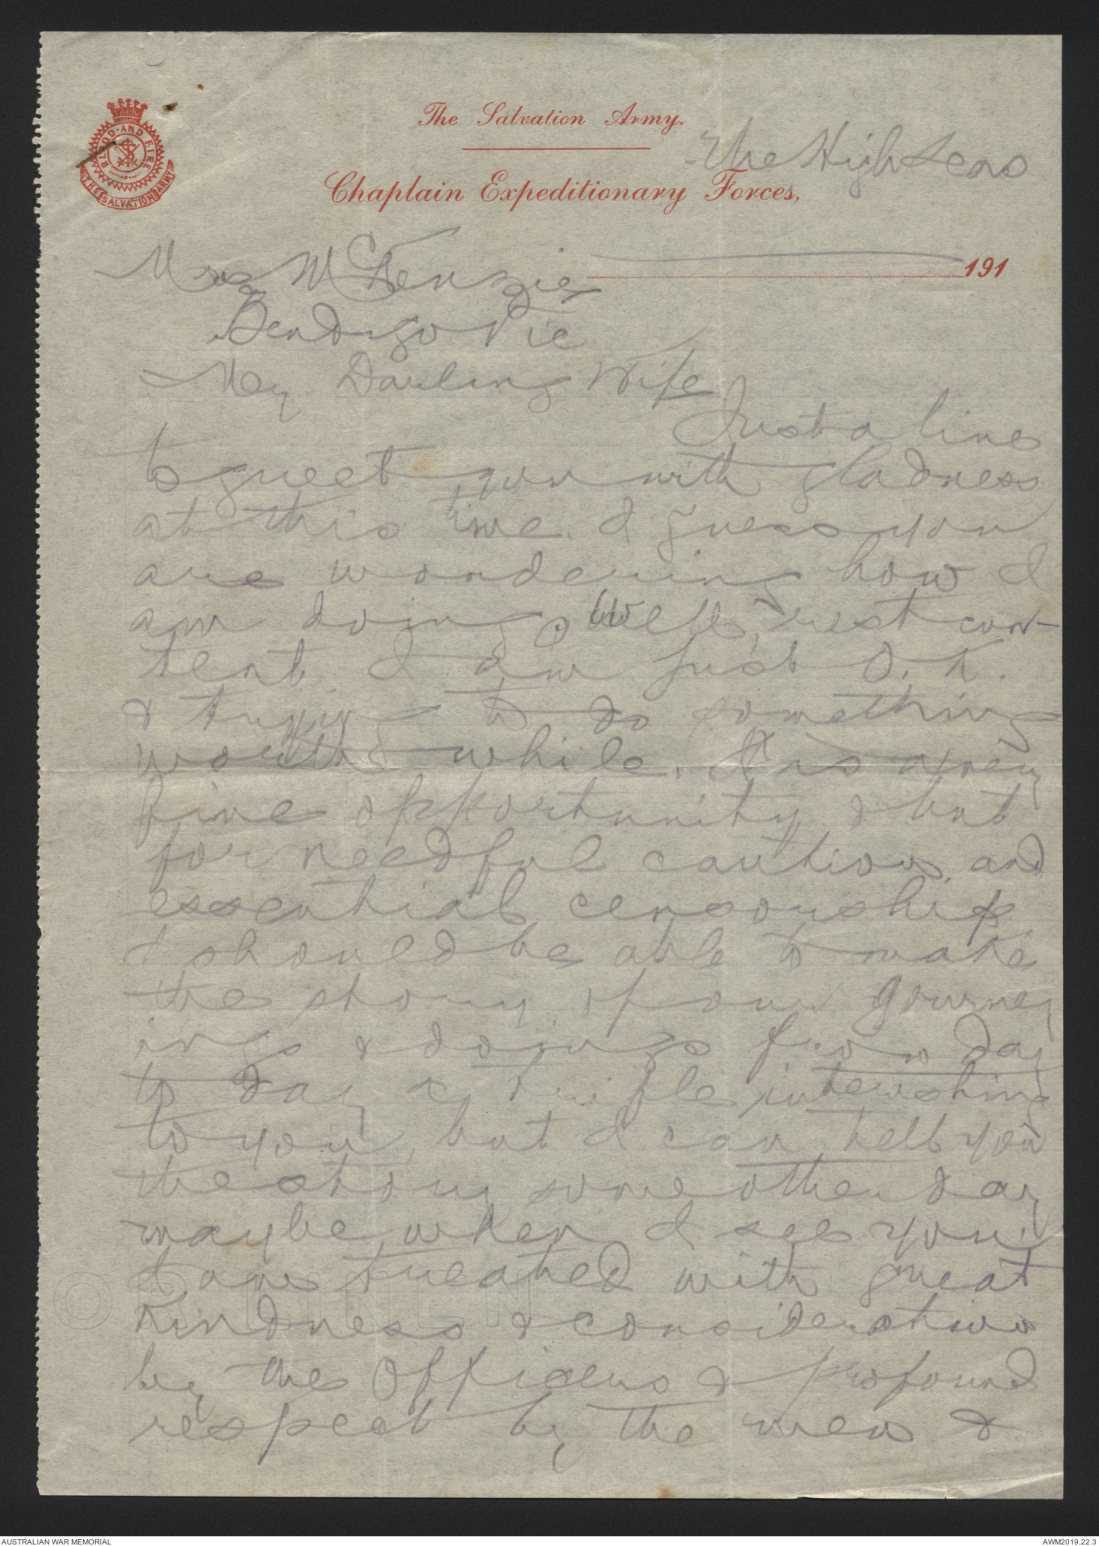 The Salvation Army.
BLOOD AND FIRE
THE SALVATION ARMY
The High Seas
Chaplain Expeditionary Forces,
191
Mrs McKenzie
Bendigo Vic
My Darling Wife
Just a line
to greet you with gladness
at this time. I guess you
are wondering how I
am doing. Well, rest con-
tent I am just O.K.
& trying to do something
worth while. It is a very
fine opportunity & but
for needful caution and
essential censorship
I should be able to make
the story of our journey
ings & doings from day
to day a trifle interesting
to you, but I can tell you
the story some other day
maybe when I see you.
I am treated with great
kindness & consideration
by the Officers & profound
respect by the men &
AUSTRALIAN WAR MEMORIAL
AWM2019.22.3